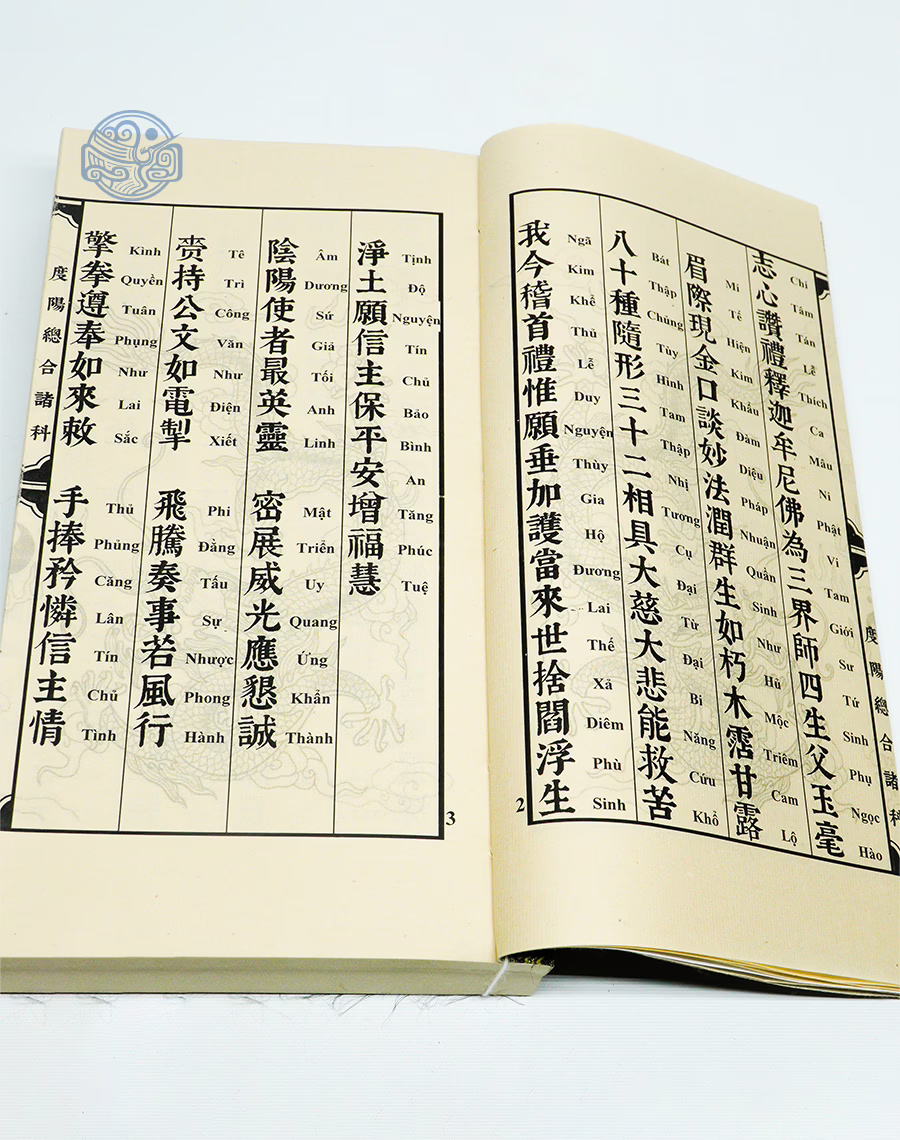 度陽總合諸科
志心讚禮釋迦牟尼佛為三界師四生父玉毫
Chí Tâm Tán Lễ Thích Ca Mâu Ni Phật Vi Tam Giới Sư Tứ Sinh Phụ Ngọc Hào
眉際現金口談妙法潤群生如朽木霑甘露
Mi Tế Hiện Kim Khẩu Đàm Diệu Pháp Nhuận Quần Sinh Như Hủ Mộc Triêm Cam Lộ
八十種隨形三十二相具大慈大悲能救苦
Bát Thập Chủng Tùy Hình Tam Thập Nhị Tương Cụ Đại Từ Đại Bi Năng Cứu Khổ
我今稽首禮惟願垂加護當來世捨閻浮生
Ngã Kim Khể Thủ Lễ Duy Nguyện Thùy Gia Hộ Đương Lai Thế Xả Diêm Phù Sinh
2
淨土願信主保平安增福慧
Tịnh Độ Nguyện Tín Chủ Bảo Bình An Tăng Phúc Tuệ
陰陽使者最英靈 密展威光應懇誠
Âm Dương Sứ Giả Tối Anh Linh Mật Triển Uy Quang Ứng Khẩn Thành
赍持公文如電掣 飛騰奏事若風行
Tê Trì Công Văn Như Điện Xiết Phi Đằng Tấu Sự Nhược Phong Hành
擎拳遵奉如來敕 手捧矜憐信主情
Kình Quyền Tuân Phụng Như Lai Sắc Thủ Phủng Căng Lân Tín Chủ Tình
度陽總合諸科
3